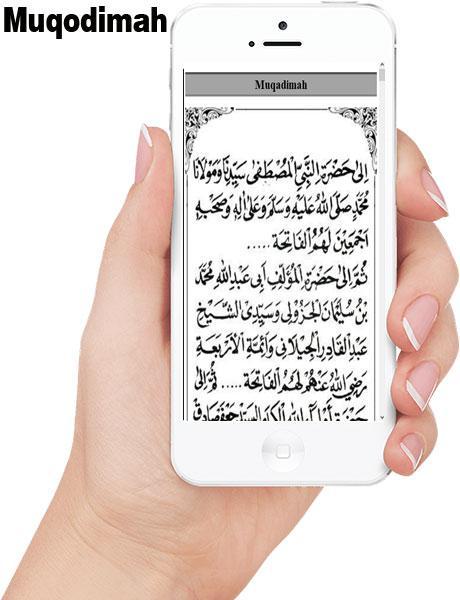 Muqodimah
Muqadimah
اِلٰى حَضْرَةِ النَّبِيِّ الْمُصْطَفٰى سَيِّدِنَا وَمَوْلَانَا
مُحَمَّدٍ صَلَّى اللهُ عَلَيْهِ وَسَلَّمَ وَعَلٰى اٰلِهِ وَصَحْبِهِ
اَجْمَعِيْنَ لَهُمُ الْفَاتِحَة .....
ثُمَّ اِلٰى حَضْرَةِ الْمُؤَلِّفِ اَبِى عَبْدِ اللهِ مُحَمَّدْ
بْنُ سُلَيْمَانَ الْجَزُوْلِى وَسَيِّدِى الشَّيْخِ
عَبْدِ الْقَادِرِ الْجِيْلَانِى وَاَئِمَّةِ الْاَرْبَعَةِ
رَضِيَ اللهُ عَنْهُمْ لَهُمُ الْفَاتِحَة ..... ثُمَّ اِلٰى
حَضْرَةِ